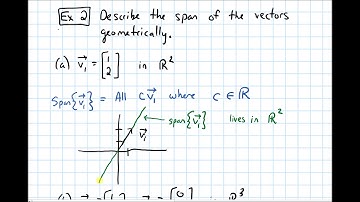 Ex 2 Describe the span of the vectors
geometrically.
(a) v⃗₁ = [1 2] in ℝ²
Span{v⃗₁} = All cv⃗₁ where c ∈ ℝ
span{v⃗₁} lives in ℝ²
v⃗₁